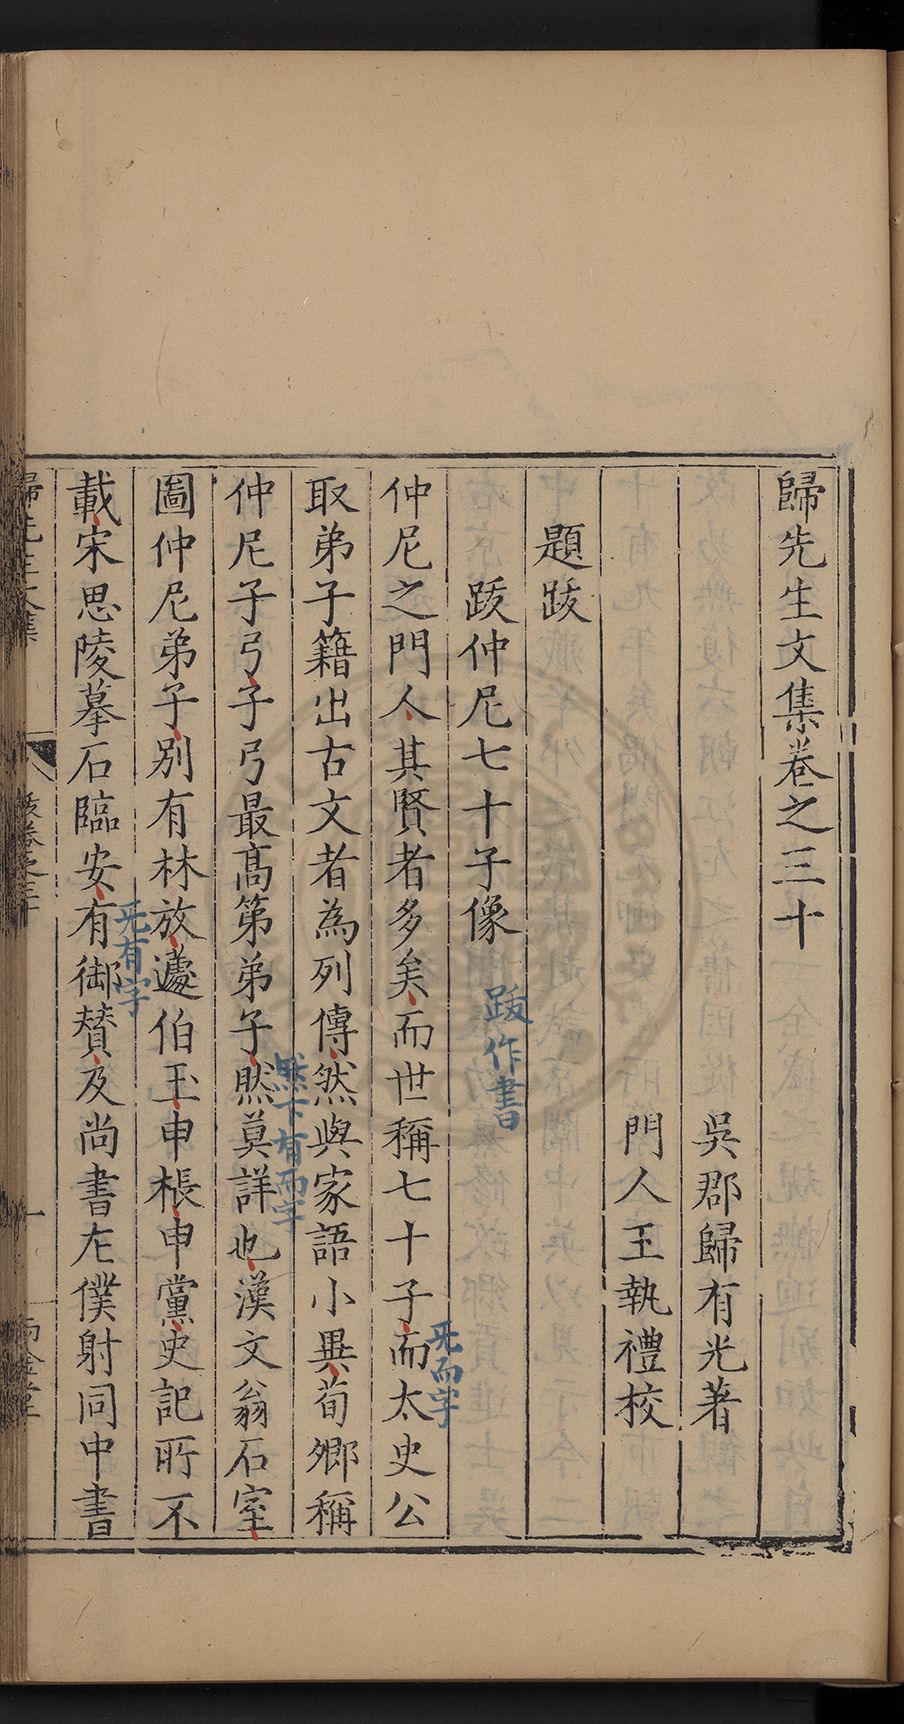 歸先生文集卷之三十
吳郡歸有光著
門人王執禮校
題跋
跋仲尼七十子像
跋作書
仲尼之門人其賢者多矣而世稱七十子而太史公
旡而字
取弟子籍出古文者為列傳然與家語小異荀鄉稱
然下有而字
仲尼子弓子弓最高第弟子然莫詳也漢文翁石室
圖仲尼弟子別有林放蘧伯玉申棖申黨史記所不
旡有字
載宋思陵摹石臨安有御贊及尚書左僕射同中書